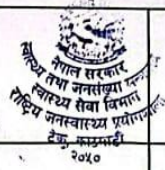 नेपाल सरकार
स्वास्थ्य तथा जनसंख्या
स्वास्थ्य सेवा विभाग
राष्ट्रिय जनस्वास्थ्य प्रयोगशाला
टेकु, काठमाडौं
२०५०